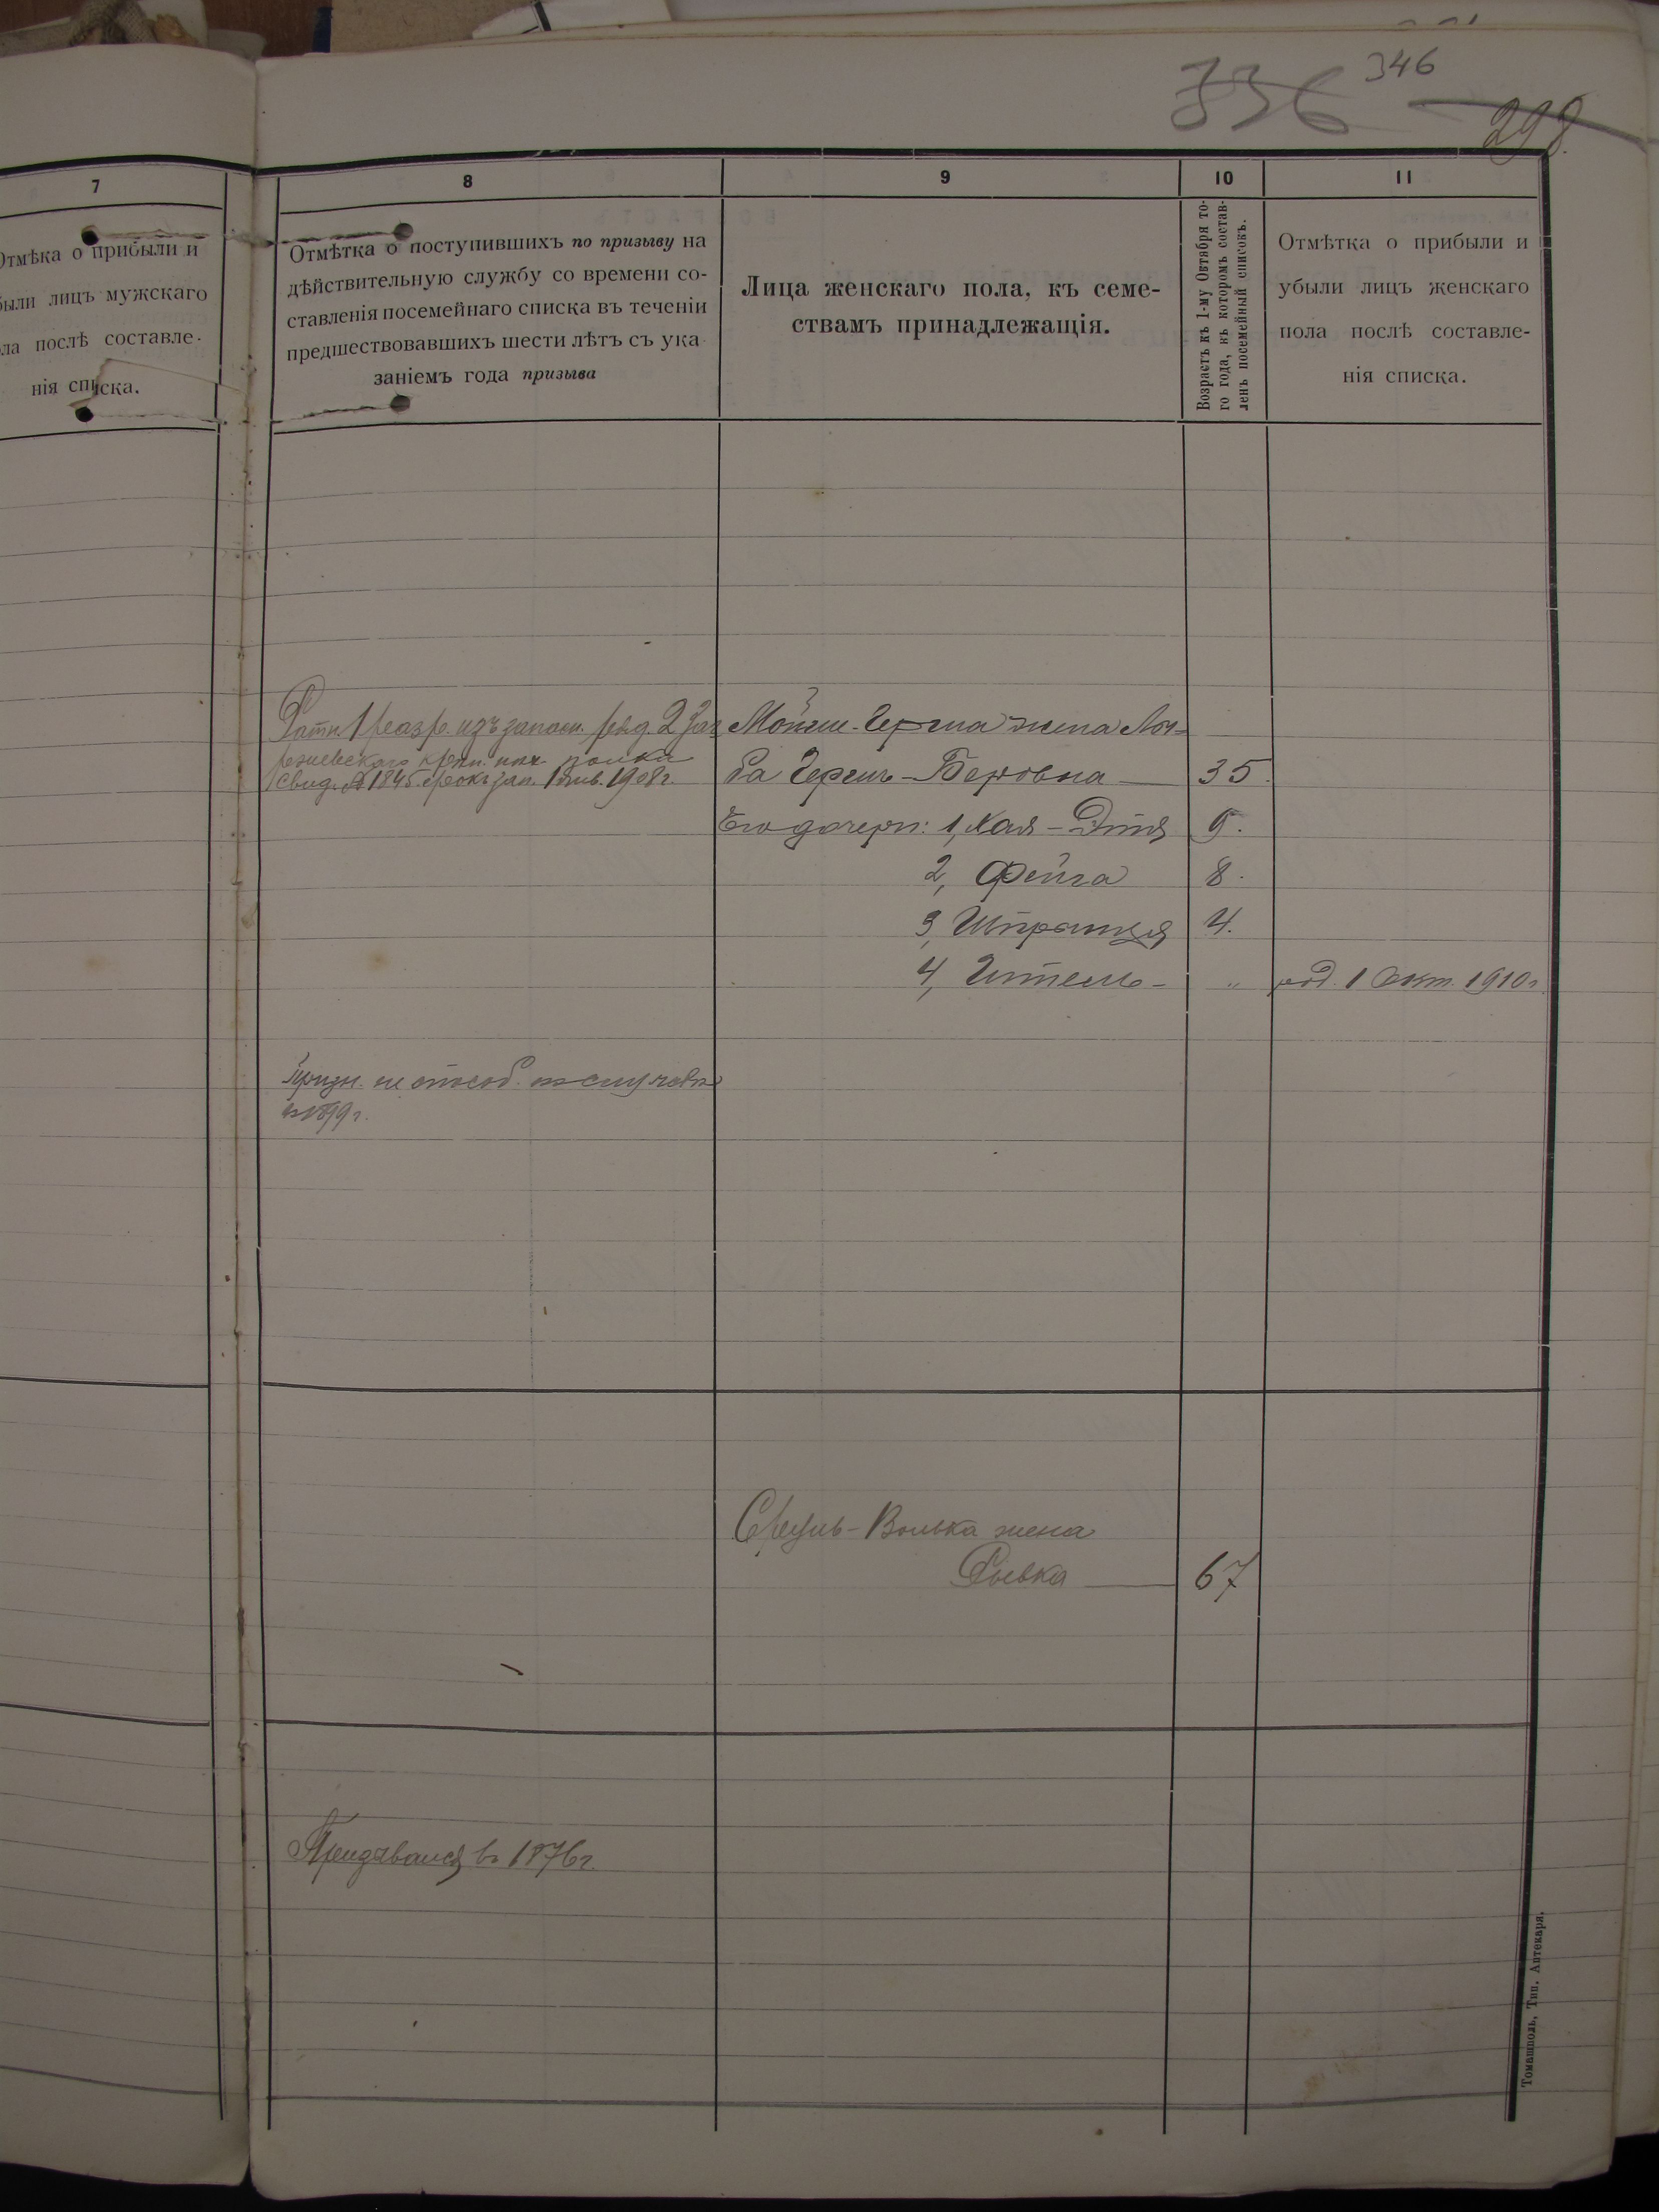 346
336
298.
7
Отмѣка о прибыли и
были лицъ мужскаго
ла послѣ составле-
нія списка.
8
Отмѣтка о поступившихъ по призыву на
дѣйствительную службу со времени со-
ставленія посемейнаго списка въ теченіи
предшествовавшихъ шести лѣтъ съ ука-
заніемъ года призыва
9
Лица женскаго пола, къ семе-
ствамъ принадлежащія.
10
Возрастъ къ 1-му Октября то-
го года, къ которомъ состав-
ленъ посемейный списокъ.
11
Отмѣтка о прибыли и
убыли лицъ женскаго
пола послѣ составле-
нія списка.
Ратн. 1 разр. изъ запасн. 2
полка
Свид. № 1845. срокъ зап. 1 янв. 1908 г.
жена
ба Герш-Беровна 35.
Его дочери: 1, Хая-Этя 9.
2, Фейга 8.
3, Шпринця 4.
4, Ителъ - " род. 1 Окт. 1910 г.
призн. не способ. къ службѣ
въ 1899 г.
Сруль-Волька жена
Рывка 67
въ 1876 г.
Томашполь, Тип. Аптекаря.